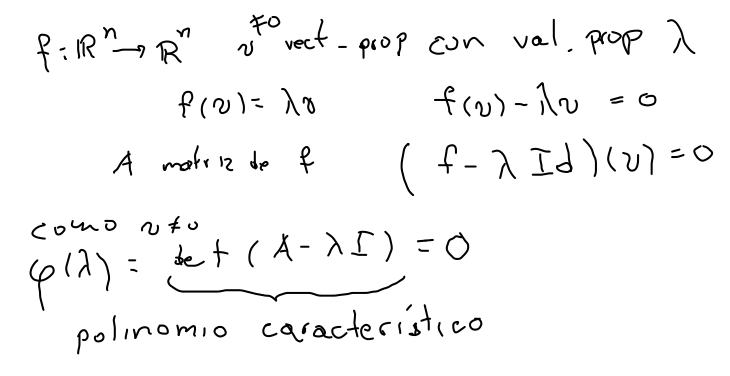 f : ℝⁿ → ℝⁿ v ≠0 vect-prop con val. prop λ
f(v) = λv f(v) - λv = 0
A matriz de f ( f - λ Id )(v) = 0
como v ≠ 0
φ(λ) = det ( A - λI ) = 0
polinomio característico